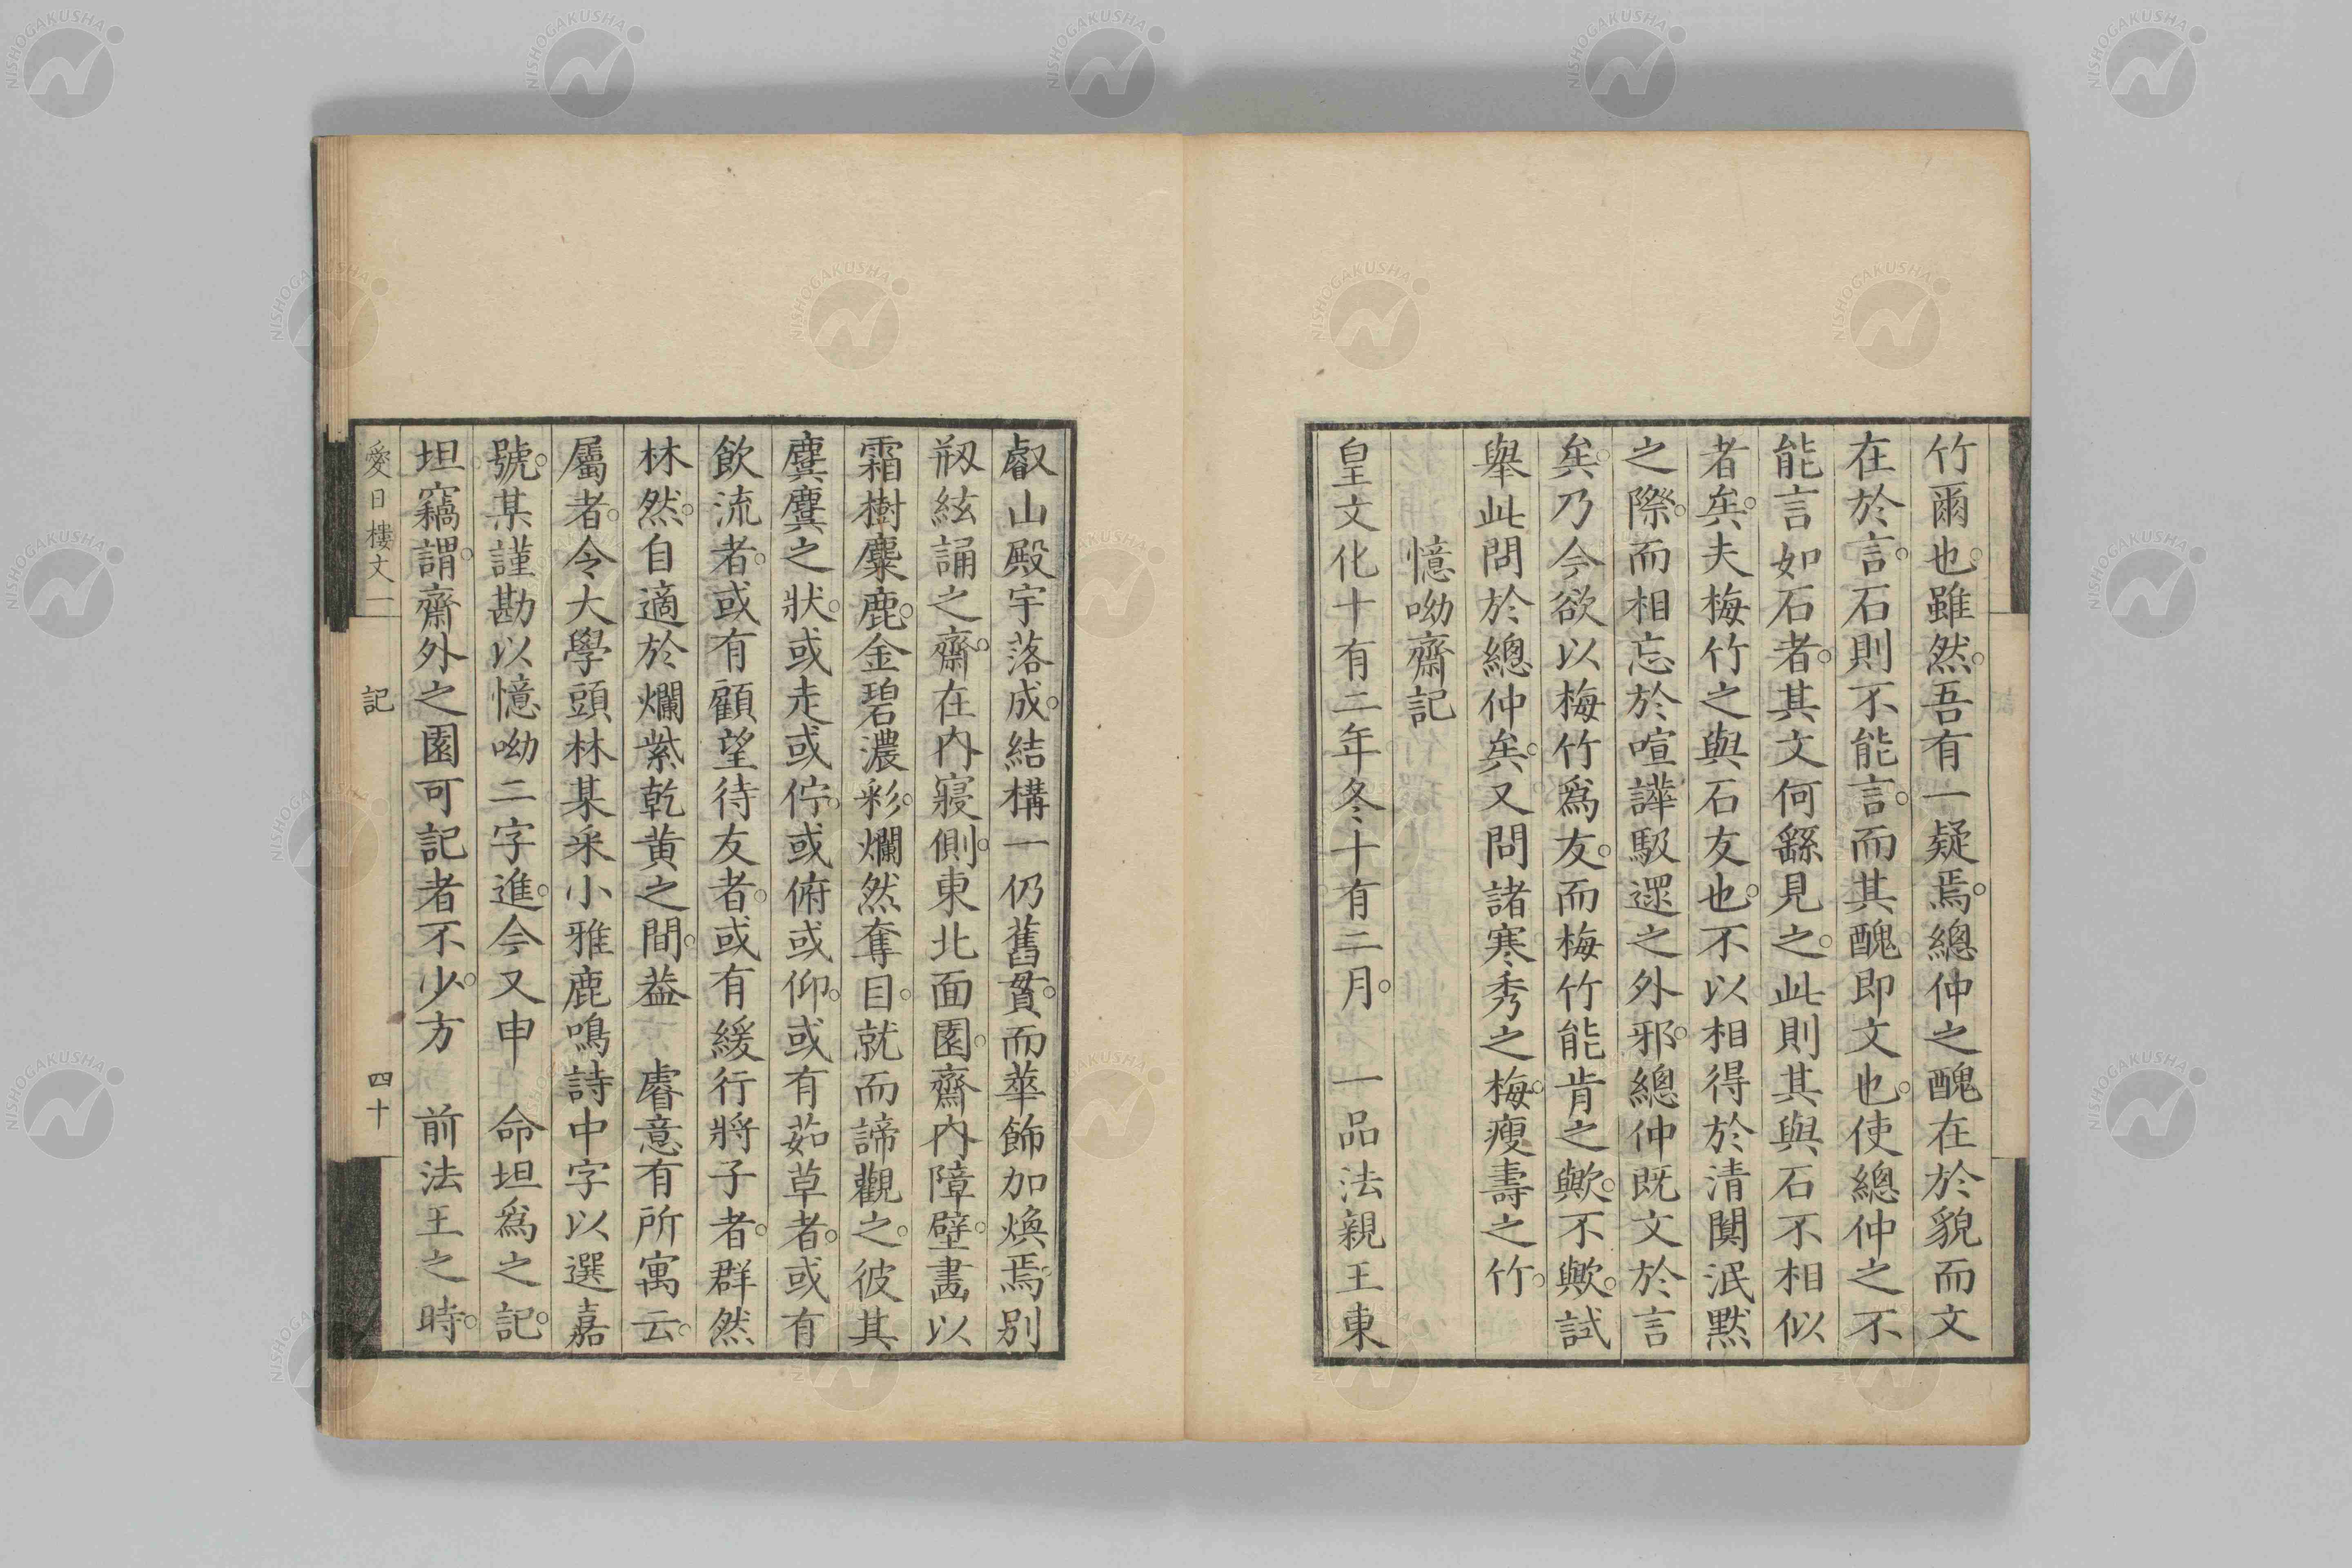 竹爾也。雖然。吾有一疑焉。總仲之醜在於貌而文
在於言。石則不能言。而其醜即文也。使總仲之不
能言如石者。其文何繇見之。此則其與石不相似
者矣。夫梅竹之與石友也。不以相得於清闃泯默
之際。而相忘於喧譁馺遝之外邪。總仲既文於言
矣。乃今欲以梅竹爲友。而梅竹能肯之歟。不歟。試
舉此問於總仲矣。又問諸寒秀之梅。瘦壽之竹。
憶呦齋記
皇文化十有二年冬十有二月。 一品法親王東
叡山殿宇落成。結構一仍舊貫。而華飾加煥焉。別
剏絃誦之齋。在內寢側。東北面園。齋內障壁。畫以
霜樹麋鹿。金碧濃彩。爛然奪目。就而諦觀之。彼其
麌麌之狀。或走或佇。或俯或仰。或有茹草者。或有
飲流者。或有顧望待友者。或有緩行將子者。群然
林然。自適於爛紫乾黃之間。葢 睿意有所寓云。
屬者。令大學頭林某采小雅鹿鳴詩中字以選嘉
號。某謹勘以憶呦二字進。今又申 命坦爲之記。
坦竊謂。齋外之園可記者不少。方 前法王之時。
愛日樓文一 記 四十
NISHOGAKUSHA